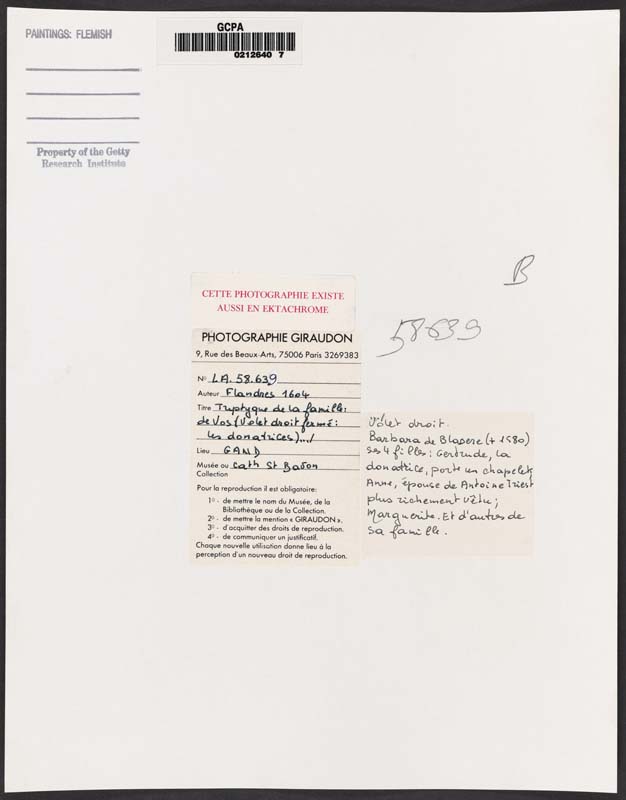 PAINTINGS: FLEMISH
GCPA
0212640 7
Property of the Getty
Research Institute
B
58639
CETTE PHOTOGRAPHIE EXISTE
AUSSI EN EKTACHROME
PHOTOGRAPHIE GIRAUDON
9, Rue des Beaux-Arts, 75006 Paris 3269383
N° LA. 58.639
Auteur Flandres 1604
Titre Tryptyque de la famille:
de Vos (Volet droit fermé:
les donatrices).../
Lieu GAND
Musée ou Cath St Bavon
Collection
Pour la reproduction il est obligatoire:
1° - de mettre le nom du Musée, de la
Bibliothèque ou de la Collection.
2° - de mettre la mention « GIRAUDON ».
3° - d'acquitter des droits de reproduction.
4° - de communiquer un justificatif.
Chaque nouvelle utilisation donne lieu à la
perception d'un nouveau droit de reproduction.
Volet droit.
Barbara de Blasere († 1580)
ses 4 filles: Gertrude, la
donatrice, porte un chapelet,
Anne, épouse de Antoine Triest
plus richement vêtu;
Marguerite. Et d'autres de
sa famille.